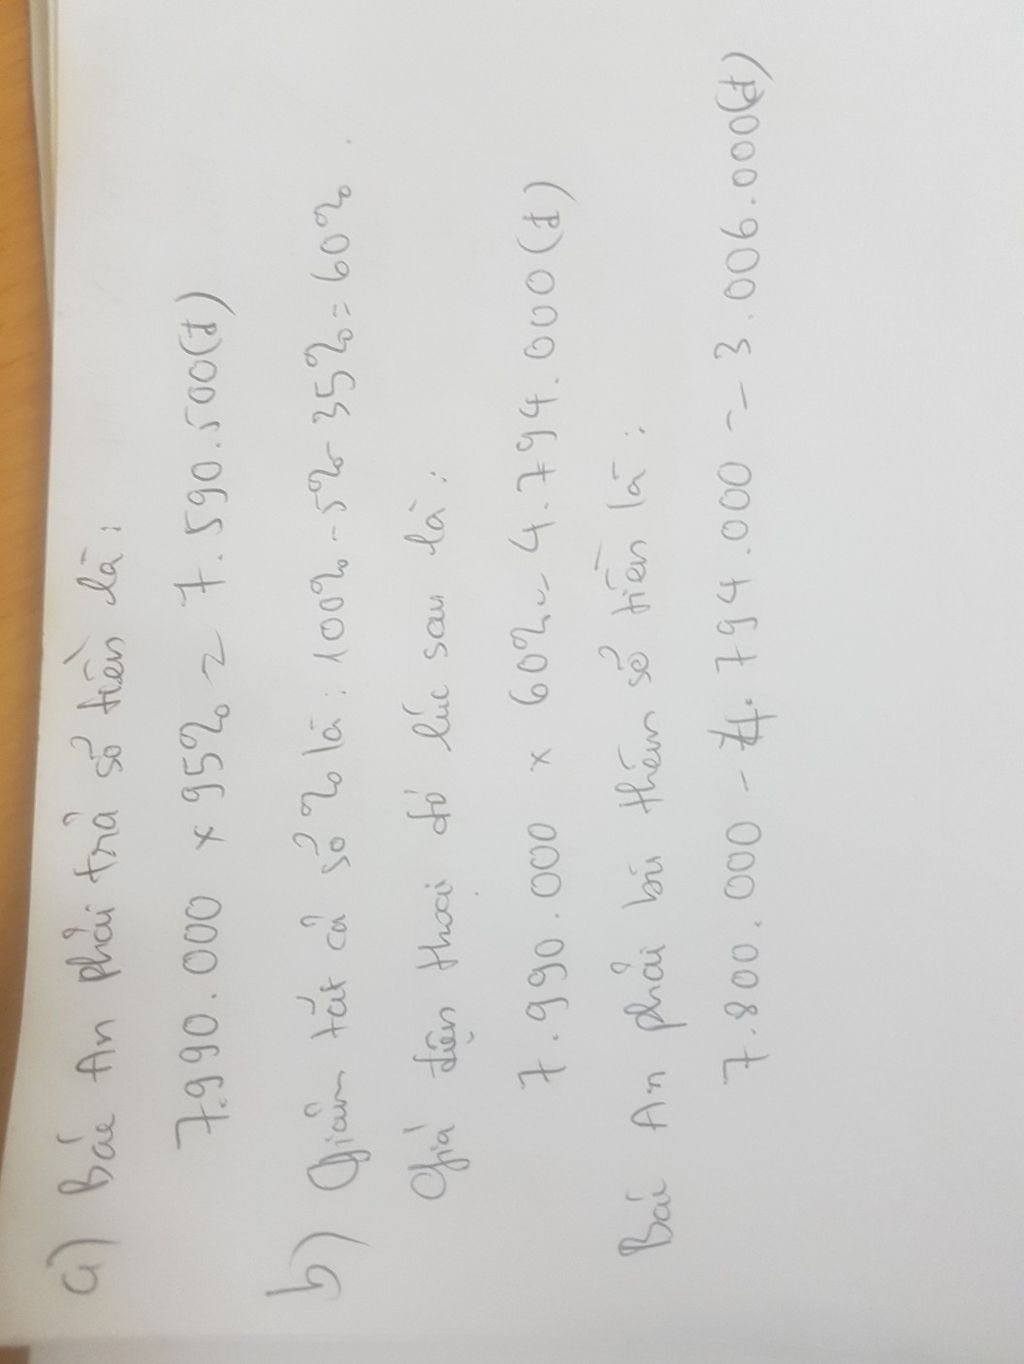 a) Bác An phải trả số tiền là:
7.990.000 x 95% = 7.590.500(đ)
b) Giảm tất cả số % là: 100% - 5% - 35% = 60%.
Giá điện thoại đó lúc sau là:
7.990.000 x 60% = 4.794.000(đ)
Bác An phải bù thêm số tiền là:
7.800.000 - 4.794.000 = 3.006.000(đ)